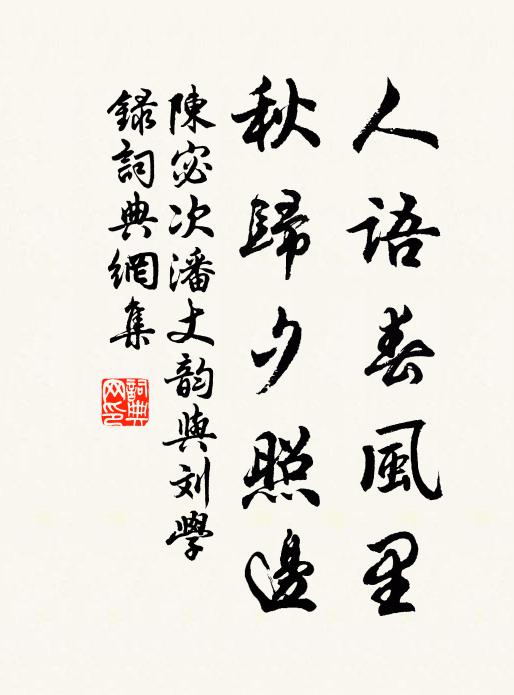 人語春風里
秋歸夕照邊
陳宓次潘丈韵與刘學
録詞典網集
詞典網印